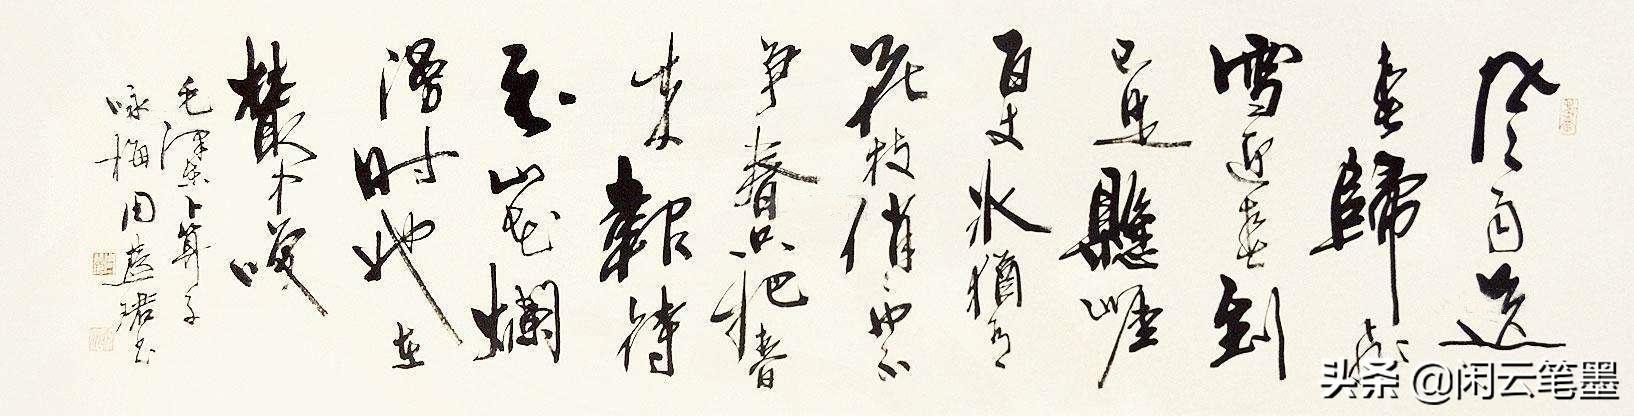 风雨送
春歸飛
雪迎春到
已是懸崖
百丈冰猶有
花枝俏〻也不
争春只把春
来報待
到山花爛
漫时她在
叢中笑
毛澤东卜算子
咏梅周慧珺书
头条 @闲云笔墨